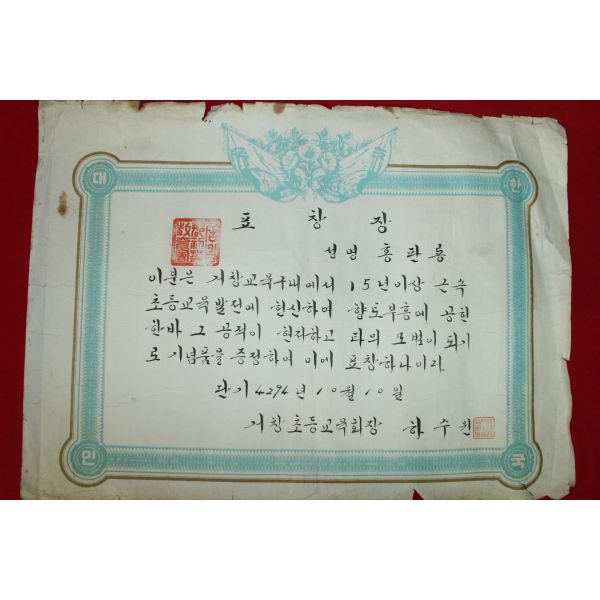 대 한
표 창 장
성명 홍판룡
이분은 거창교육구내에서 15년이상 근속
초등교육발전에 헌신하며 향토부흥에 공헌
한바 그 공적이 현저하고 타의 모범이 되기
로 기념품을 증정하며 이에 표창하나이다
단기 4294年 10월 10일
거창초등교육회장 하수원
민 국